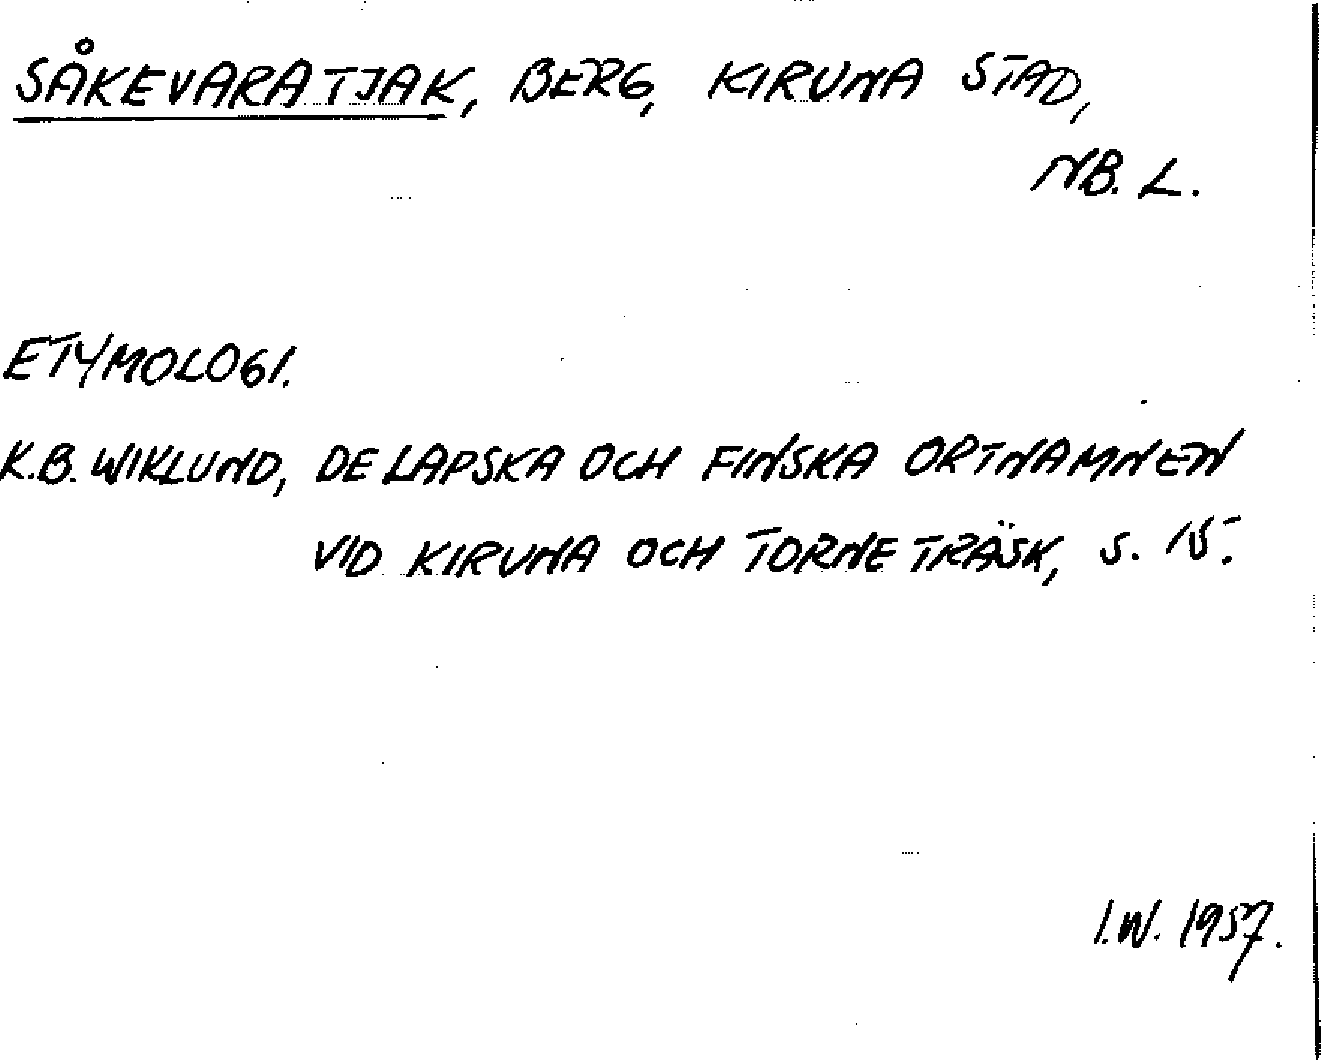 SÅKEVARATJAK, BERG, KIRUNA STAD,
NB. L.
ETYMOLOGI.
K.B. WIKLUND, DE LAPSKA OCH FINSKA ORTNAMNEN
VID KIRUNA OCH TORNETRÄSK, S. 15.
I.W. 1957.